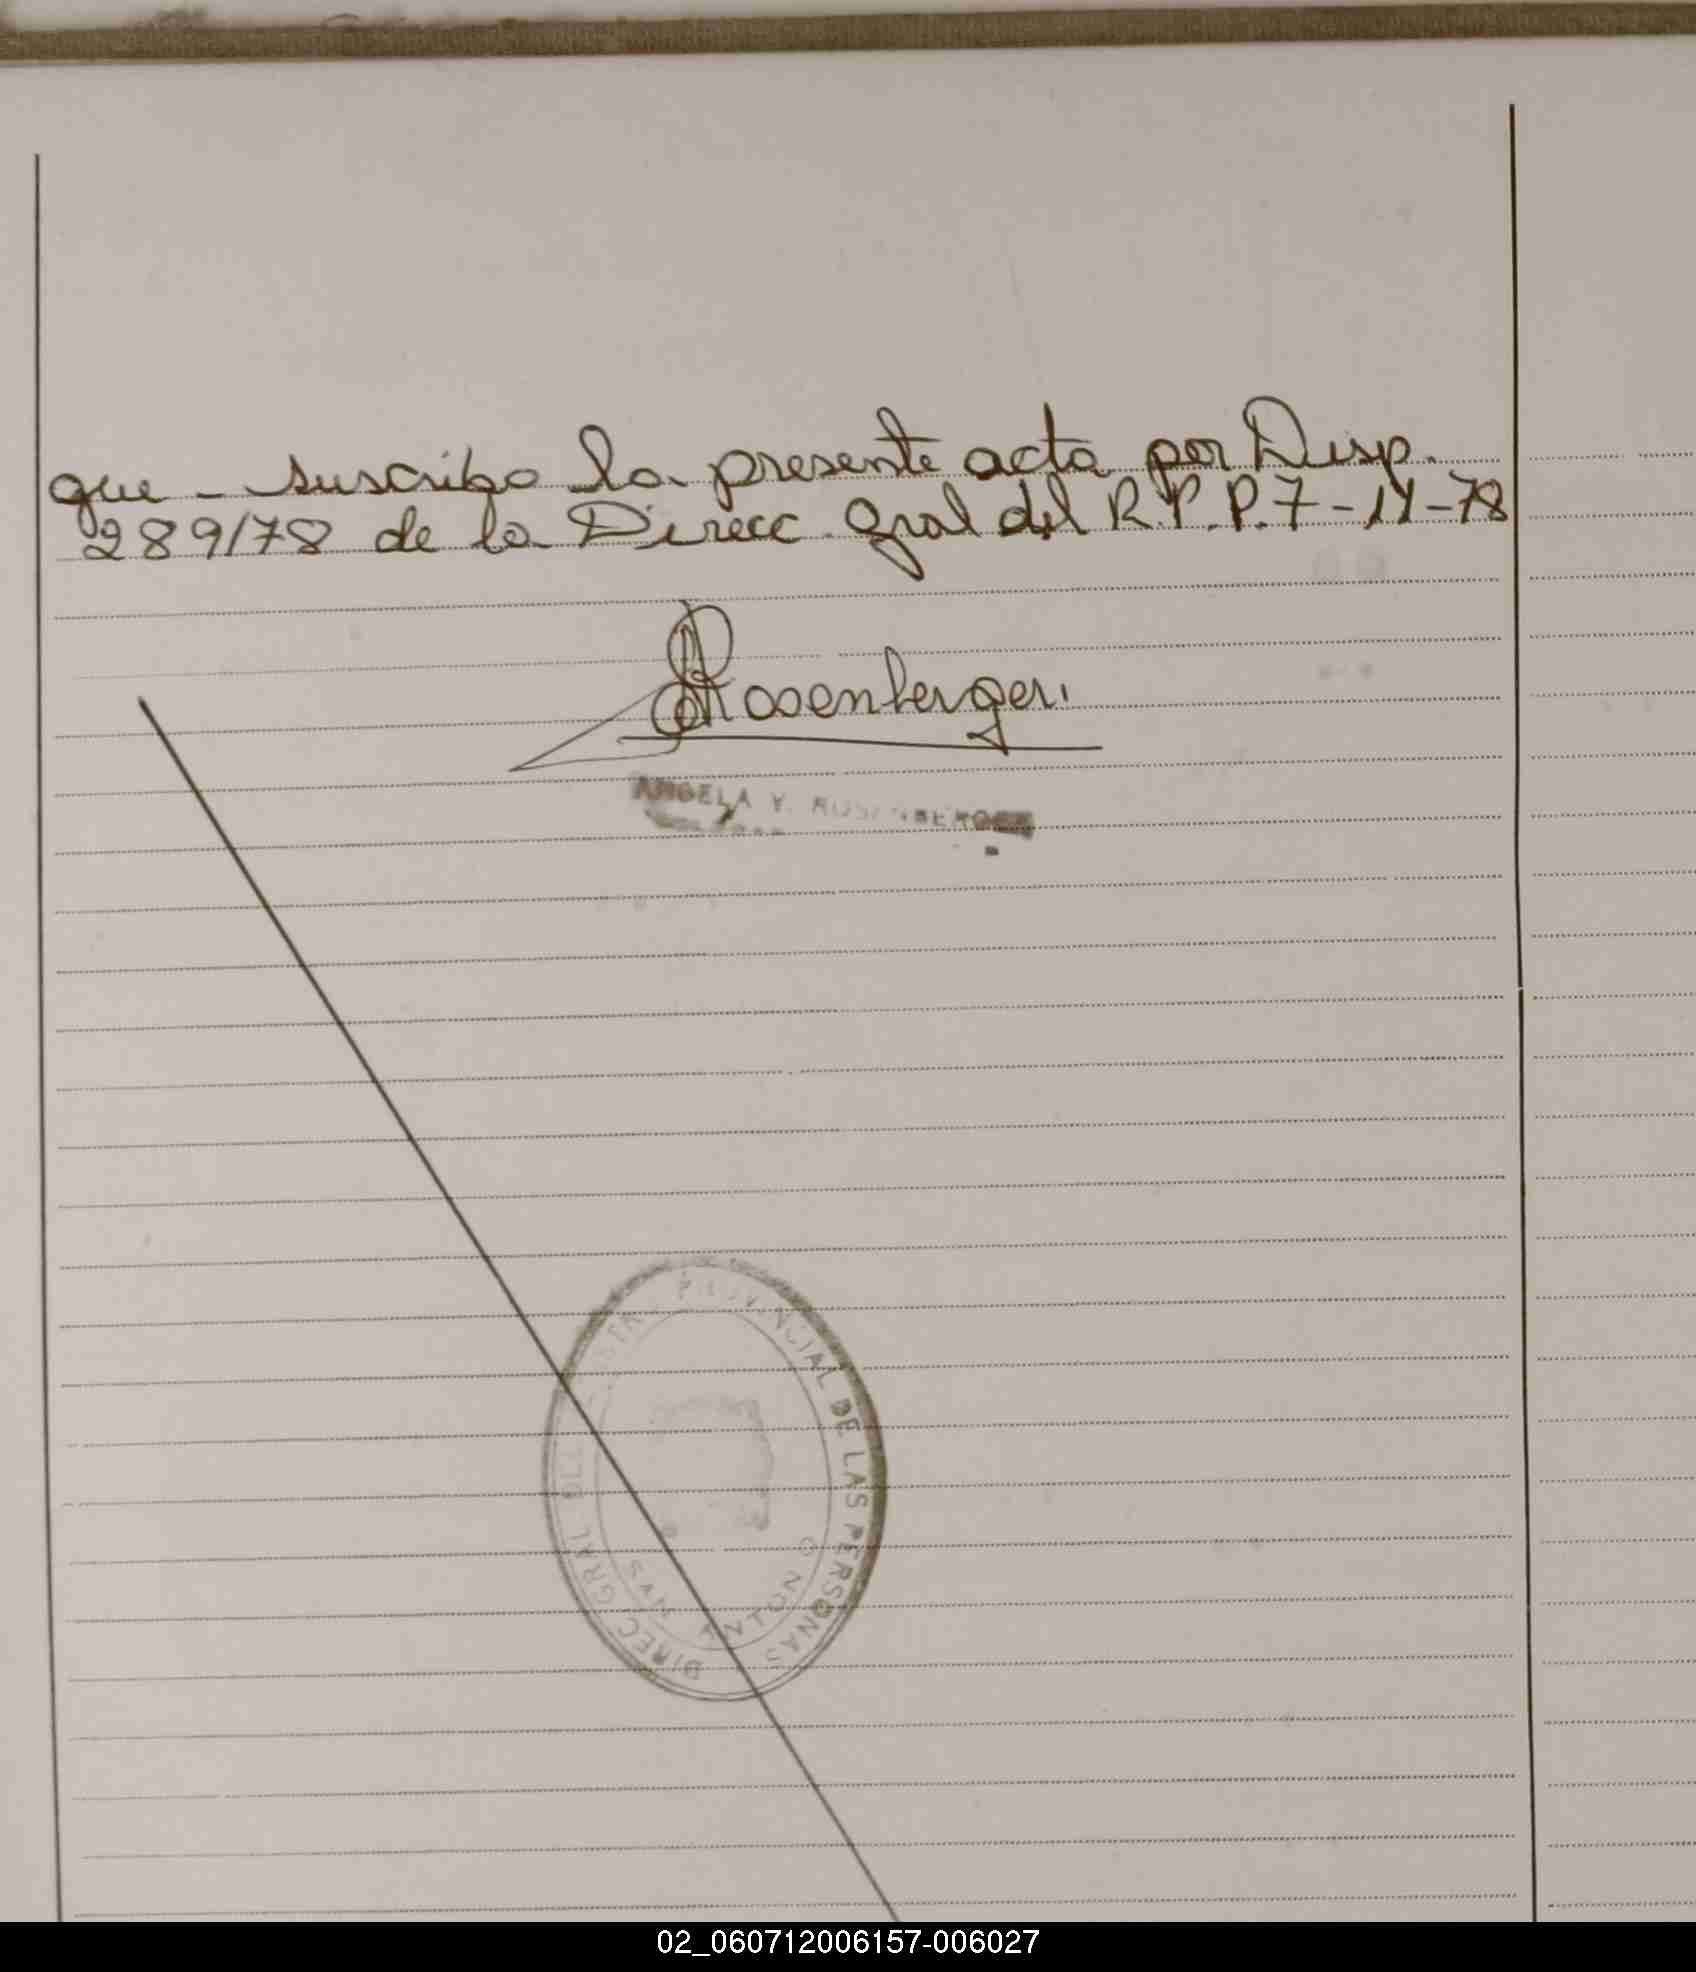 que - suscribo la presente acta por Disp.
289/78 de la Direcc. Gral del R.P.P. 7-11-78
Rosenberger
ANGELA V. ROSENBERGER
DIREC GRAL DEL PROVINCIAL DE LAS PERSONAS
SAN ANTONIO
02_060712006157-006027